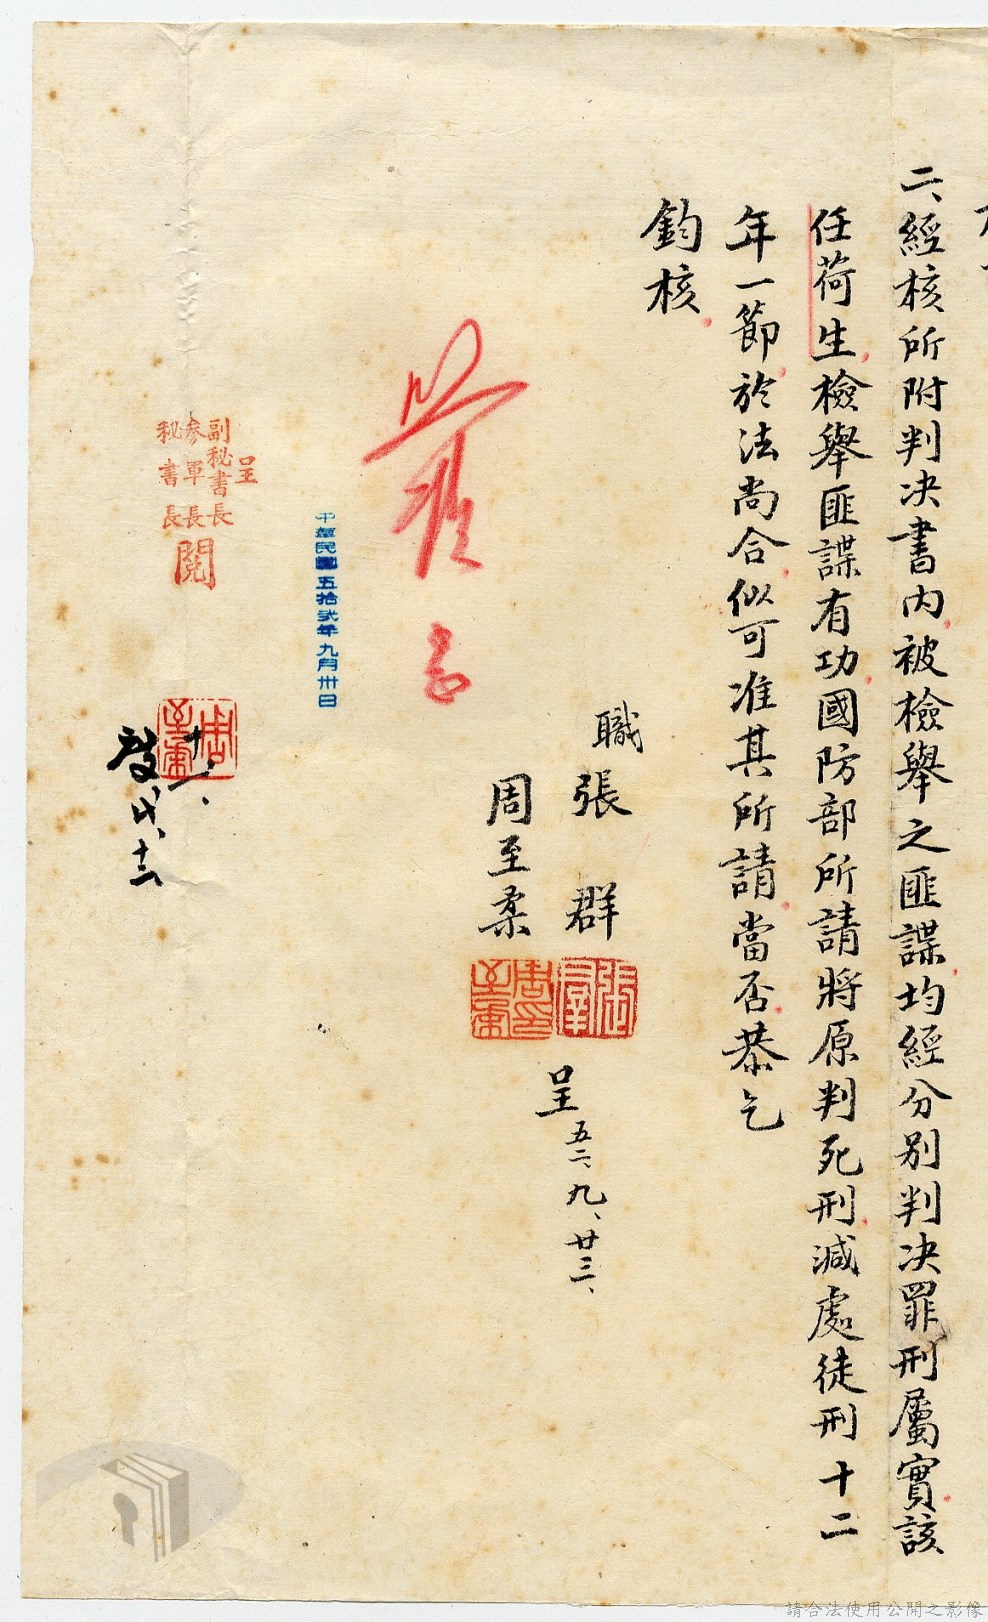 二、經核所附判決書內被檢舉之匪諜均經分別判決罪刑屬實該
任荷生檢舉匪諜有功國防部所請將原判死刑減處徒刑十二
年一節於法尚合似可准其所請當否恭乞
鈞核
職張群
周至柔
張群
周至柔印
呈五二、九、廿三、
中華民國五拾弍年九月卅日
呈
副秘書長
參軍長
秘書長
閱
周至柔
請合法使用公開之影像